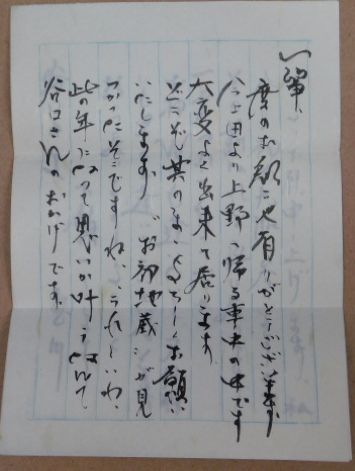 一筆、
度のお有りがとうございます
今上田より上野へ帰る車の中です
大変よく出来て居ります
どうぞ其のまゝよろしくお願い
いたします。"お初地蔵"が見
つかったそうですね、うれしいわ、
此の年になって思いが叶うなんて
谷口さんのおかげです。